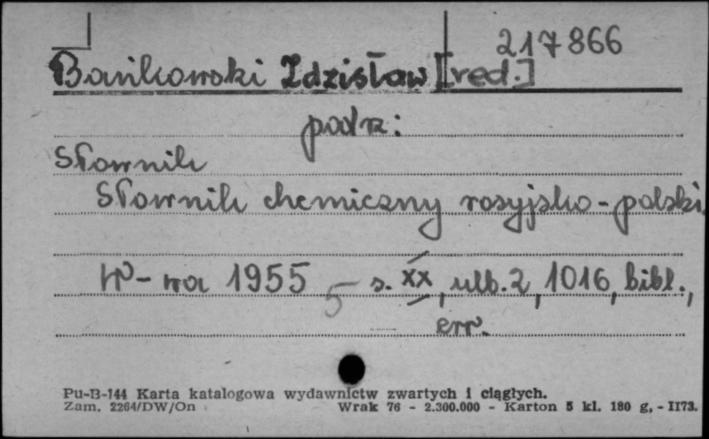 217866
Bańkowski Zdzisław [red.]
podr:
Słownik
Słownik chemiczny rosyjsko-polski.
W-wa 1955 5 s. XX, ulb. 2, 1016, bibl.,
err.
Pu-B-144 Karta katalogowa wydawnictw zwartych i ciągłych.
Zam. 2264/DW/On Wrak 76 - 2.300.000 - Karton 5 kl. 180 g. - II73.